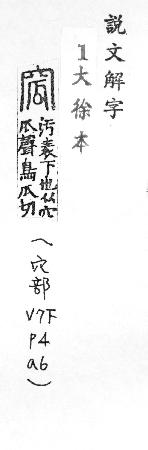 說文解字
1大徐本
窊
汚衺下也从穴
瓜聲烏瓜切
(穴部
V7下
P4
a6)